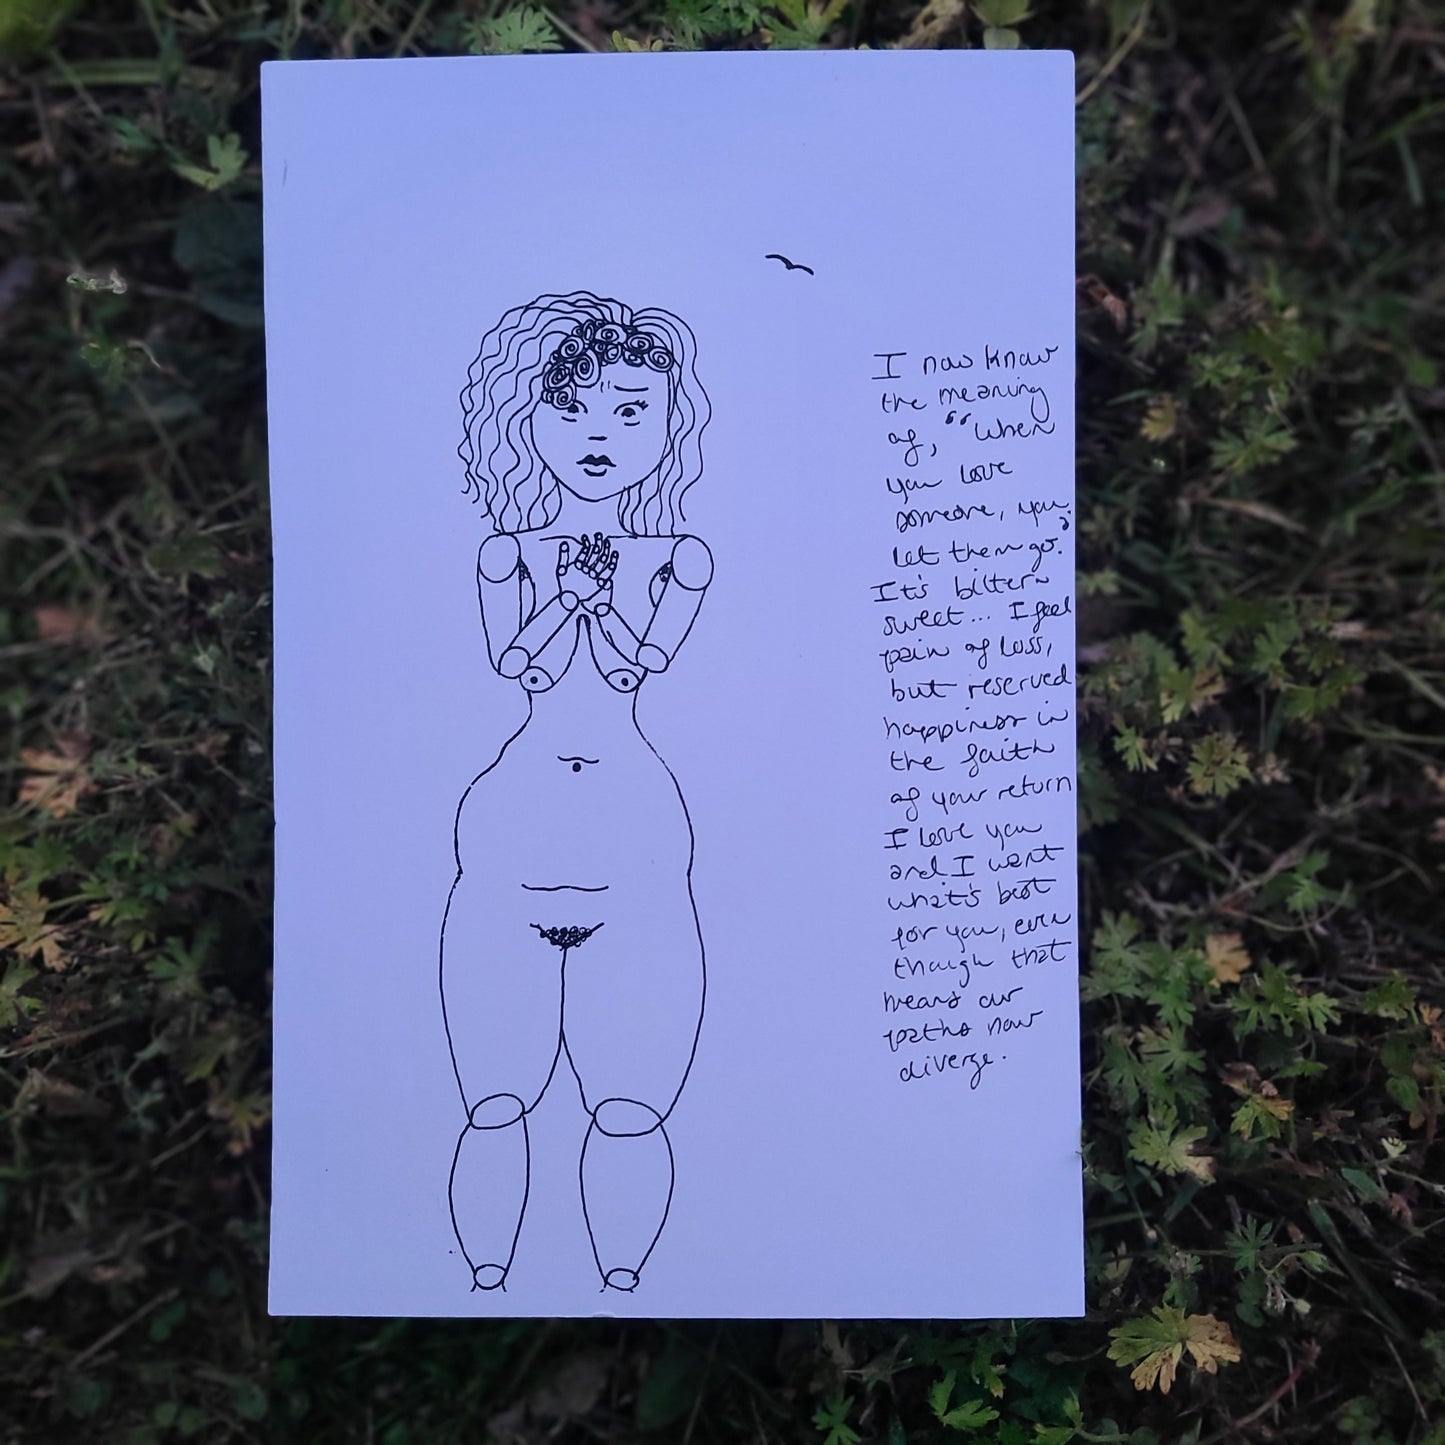 I now know
the meaning
of, "When
you love
someone, you
let them go."
It's bitter~
sweet... I feel
pain of loss,
but reserved
happiness in
the faith
of your return
I love you
and I want
what's best
for you, even
though that
means our
paths now
diverge.